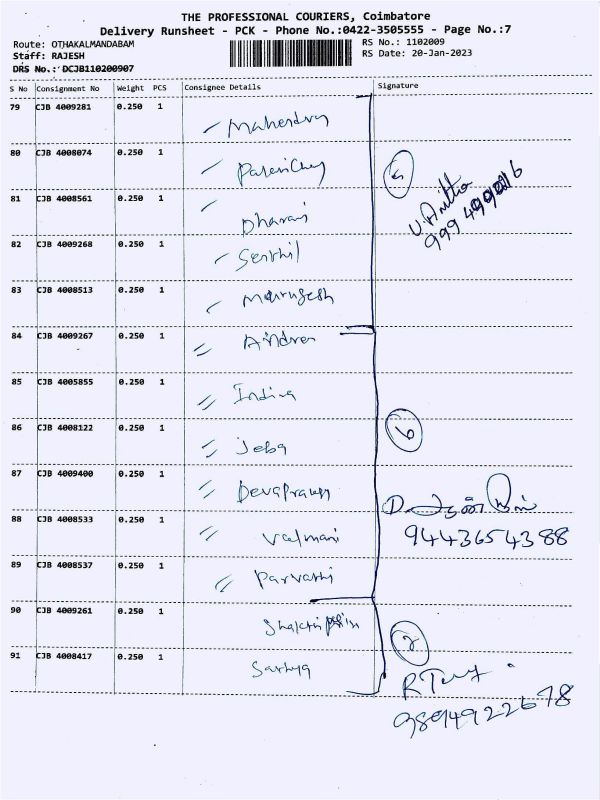 THE PROFESSIONAL COURIERS, Coimbatore
Delivery Runsheet - PCK - Phone No.:0422-3505555 - Page No.:7
Route: OTHAKALMANDABAM
RS No.: 1102009
Staff: RAJESH
RS Date: 20-Jan-2023
DRS No.: DCJB110200907
S No Consignment No Weight PCS Consignee Details Signature
79 CJB 4009281 0.250 1
80 CJB 4008074 0.250 1
5
81 CJB 4008561 0.250 1 Dharani
U. Anitha
82 CJB 4009268 0.250 1 Senthil
83 CJB 4008513 0.250 1 Murugesh
84 CJB 4009267 0.250 1
85 CJB 4005855 0.250 1 Indira
86 CJB 4008122 0.250 1 Jeba
6
87 CJB 4009400 0.250 1
88 CJB 4008533 0.250 1 Valmani
D.
9443654388
89 CJB 4008537 0.250 1 Parvathi
90 CJB 4009261 0.250 1
2
91 CJB 4008417 0.250 1 Sathya
9894922678